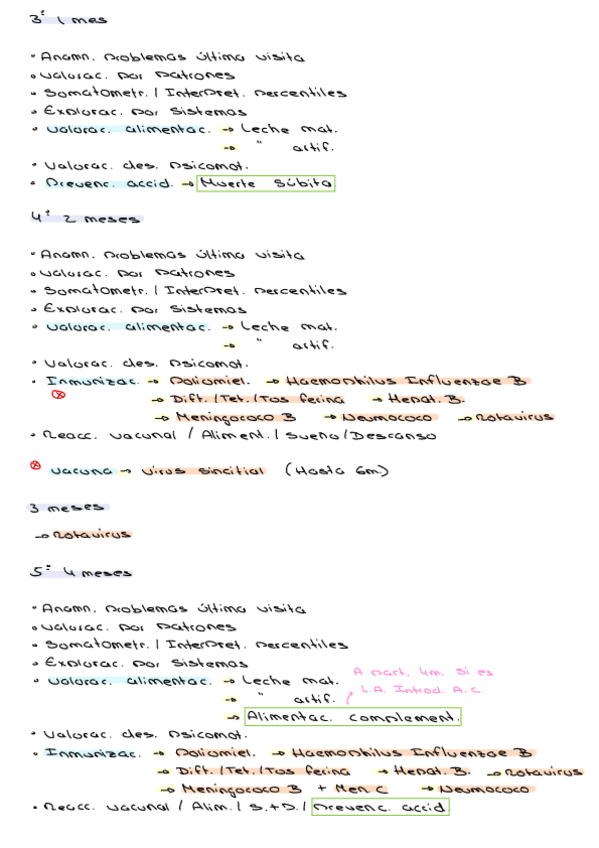 3ª 1 mes
• Anamn. problemas última visita
• Valorac. por patrones
• Somatometr. / Interpret. percentiles
• Explorac. por sistemas
• Valorac. alimentac. → Leche mat.
→ " artif.
• Valorac. des. psicomot.
• Prevenc. accid. → Muerte súbita
4ª 2 meses
• Anamn. problemas última visita
• Valorac. por patrones
• Somatometr. / Interpret. percentiles
• Explorac. por sistemas
• Valorac. alimentac. → Leche mat.
→ " artif.
• Valorac. des. psicomot.
• Inmunizac. → Poliomiel. → Haemophilus Influenzae B
⊗ → Dift. / Tet. / Tos ferina → Hepat. B.
→ Meningococo B → Neumococo → Rotavirus
• Reacc. vacunal / Aliment. / Sueño / Descanso
⊗ Vacuna → virus sincitial (Hasta 6m.)
3 meses
→ Rotavirus
5ª 4 meses
• Anamn. problemas última visita
• Valorac. por patrones
• Somatometr. / Interpret. percentiles
• Explorac. por sistemas
• Valorac. alimentac. → Leche mat.
→ " artif.
A part. 4m. si es
L.A. Introd. A.C.
→ Alimentac. complement.
• Valorac. des. psicomot.
• Inmunizac. → Poliomiel. → Haemophilus Influenzae B
→ Dift. / Tet. / Tos ferina → Hepat. B. → Rotavirus
→ Meningococo B + Men C → Neumococo
• Reacc. vacunal / Alim. / S.+D. / Prevenc. accid.